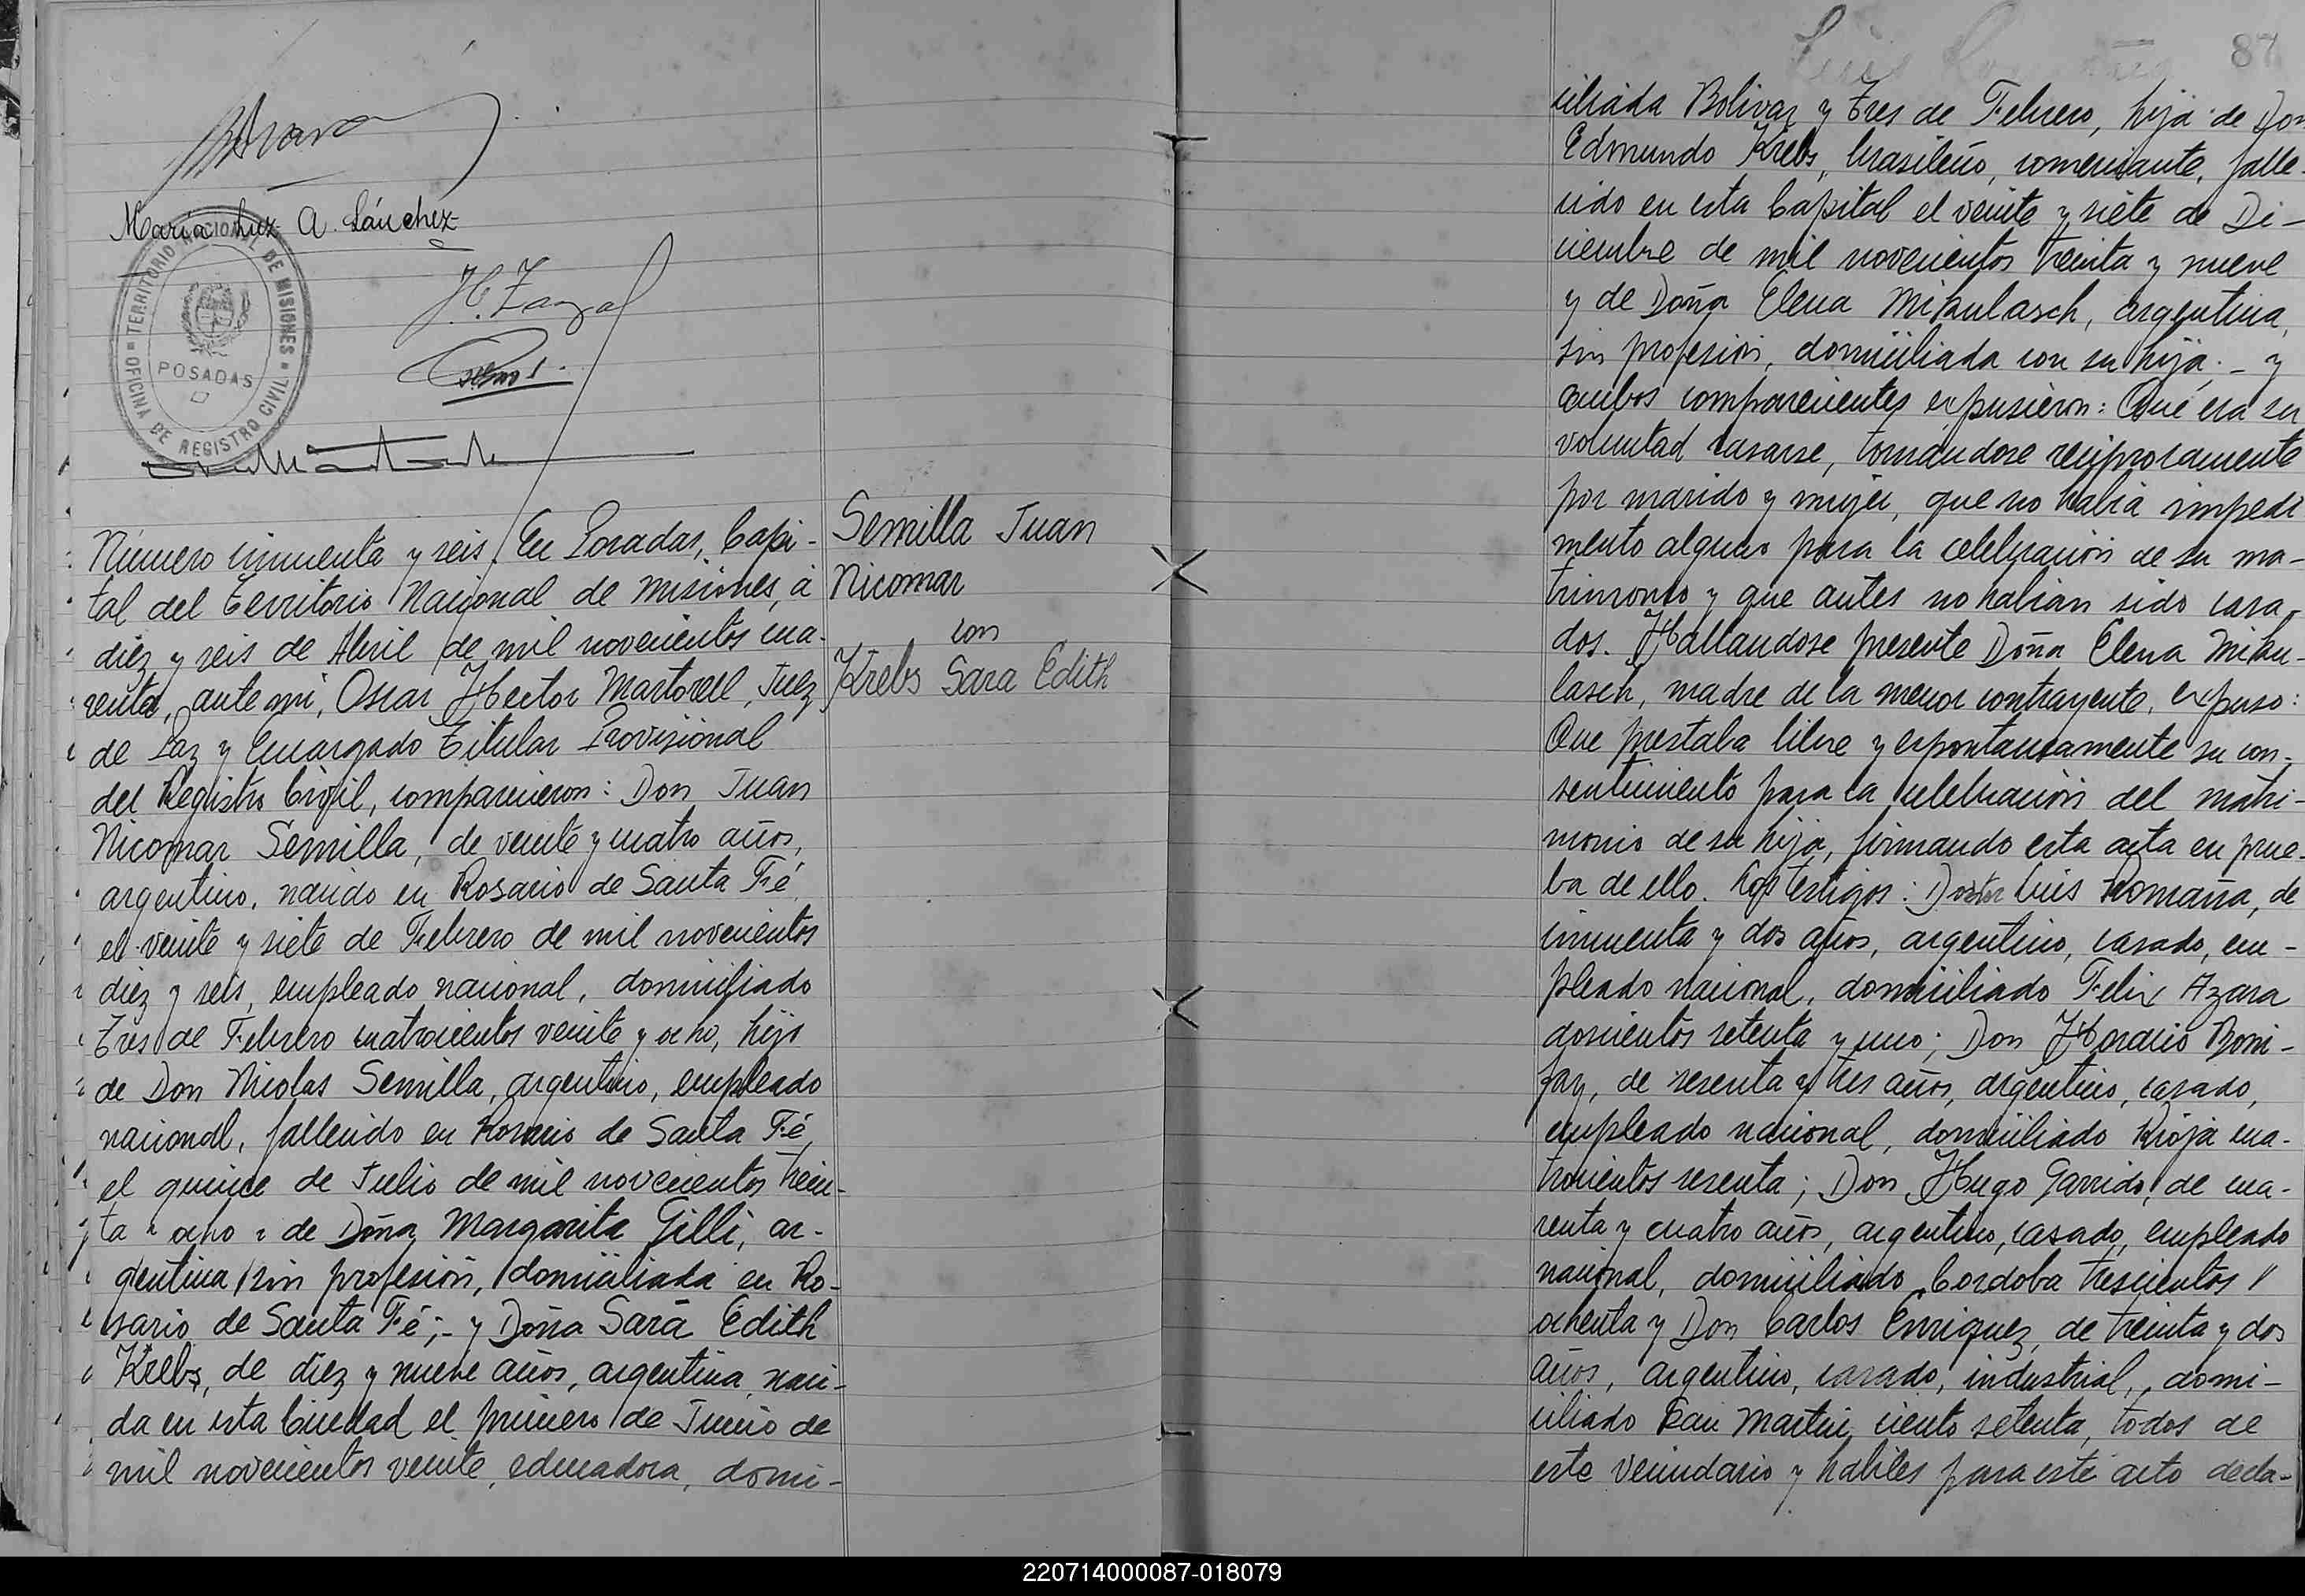 María Luz A. Sánchez
TERRITORIO NACIONAL DE MISIONES
POSADAS
OFICINA DE REGISTRO CIVIL
Número cincuenta y seis. En Posadas, Capi-
tal del Territorio Nacional de Misiones, á
diez y seis de Abril de mil novecientos cua-
renta, ante mi, Oscar Hector Martorell, Juez
de Paz y Encargado Titular Provisional
del Registro Civil, comparecieron: Don Juan
Nicomar Semilla, de veinte y cuatro años,
argentino, nacido en Rosario de Santa Fé,
el veinte y siete de Febrero de mil novecientos
diez y seis, empleado nacional, domiciliado
Tres de Febrero cuatrocientos veinte y ocho, hijo
de Don Nicolas Semilla, argentino, empleado
nacional, fallecido en Rosario de Santa Fé,
el quince de Julio de mil novecientos trein-
ta y ocho y de Doña Margarita Gilli, ar-
gentina, sin profesión, domiciliada en Ro-
sario de Santa Fé;- y Doña Sara Edith
Krebs, de diez y nueve años, argentina, naci-
da en esta Ciudad el primero de Junio de
mil novecientos veinte, educadora, domi-
Semilla Juan
Nicomar
con
Krebs Sara Edith
87
ciliada Bolivar y Tres de Febrero, hija de Don
Edmundo Krebs, brasileño, comerciante, falle-
cido en esta Capital el veinte y siete de Di-
ciembre de mil novecientos treinta y nueve
y de Doña Elena Mikulasch, argentina,
sin profesión, domiciliada con su hija.- y
ambos comparecientes expusieron: Que era su
voluntad casarse, tomandose reciprocamente
por marido y mujer, que no habia impedi
mento alguno para la celebración de su ma-
trimonio y que antes no habian sido casa-
dos. Hallandose presente Doña Elena Miku-
lasch, madre de la menor contrayente, expuso:
Que prestaba libre y espontaneamente su con-
sentimiento para la celebración del matri-
monio de su hija, firmando esta acta en prue-
ba de ello. Los testigos: Doctor Luis Romaña, de
cincuenta y dos años, argentino, casado, em-
pleado nacional, domiciliado Felix Azara
doscientos setenta y uno; Don Horacio Boni-
faz, de sesenta y tres años, argentino, casado,
empleado nacional, domiciliado Rioja cua-
trocientos sesenta; Don Hugo Garrido, de cua-
renta y cuatro años, argentino, casado, empleado
nacional, domiciliado Cordoba trescientos "
ochenta y Don Carlos Enriquez, de treinta y dos
años, argentino, casado, industrial, domi-
ciliado San Martin ciento setenta, todos de
este vecindario y habiles para este acto decla-
220714000087-018079